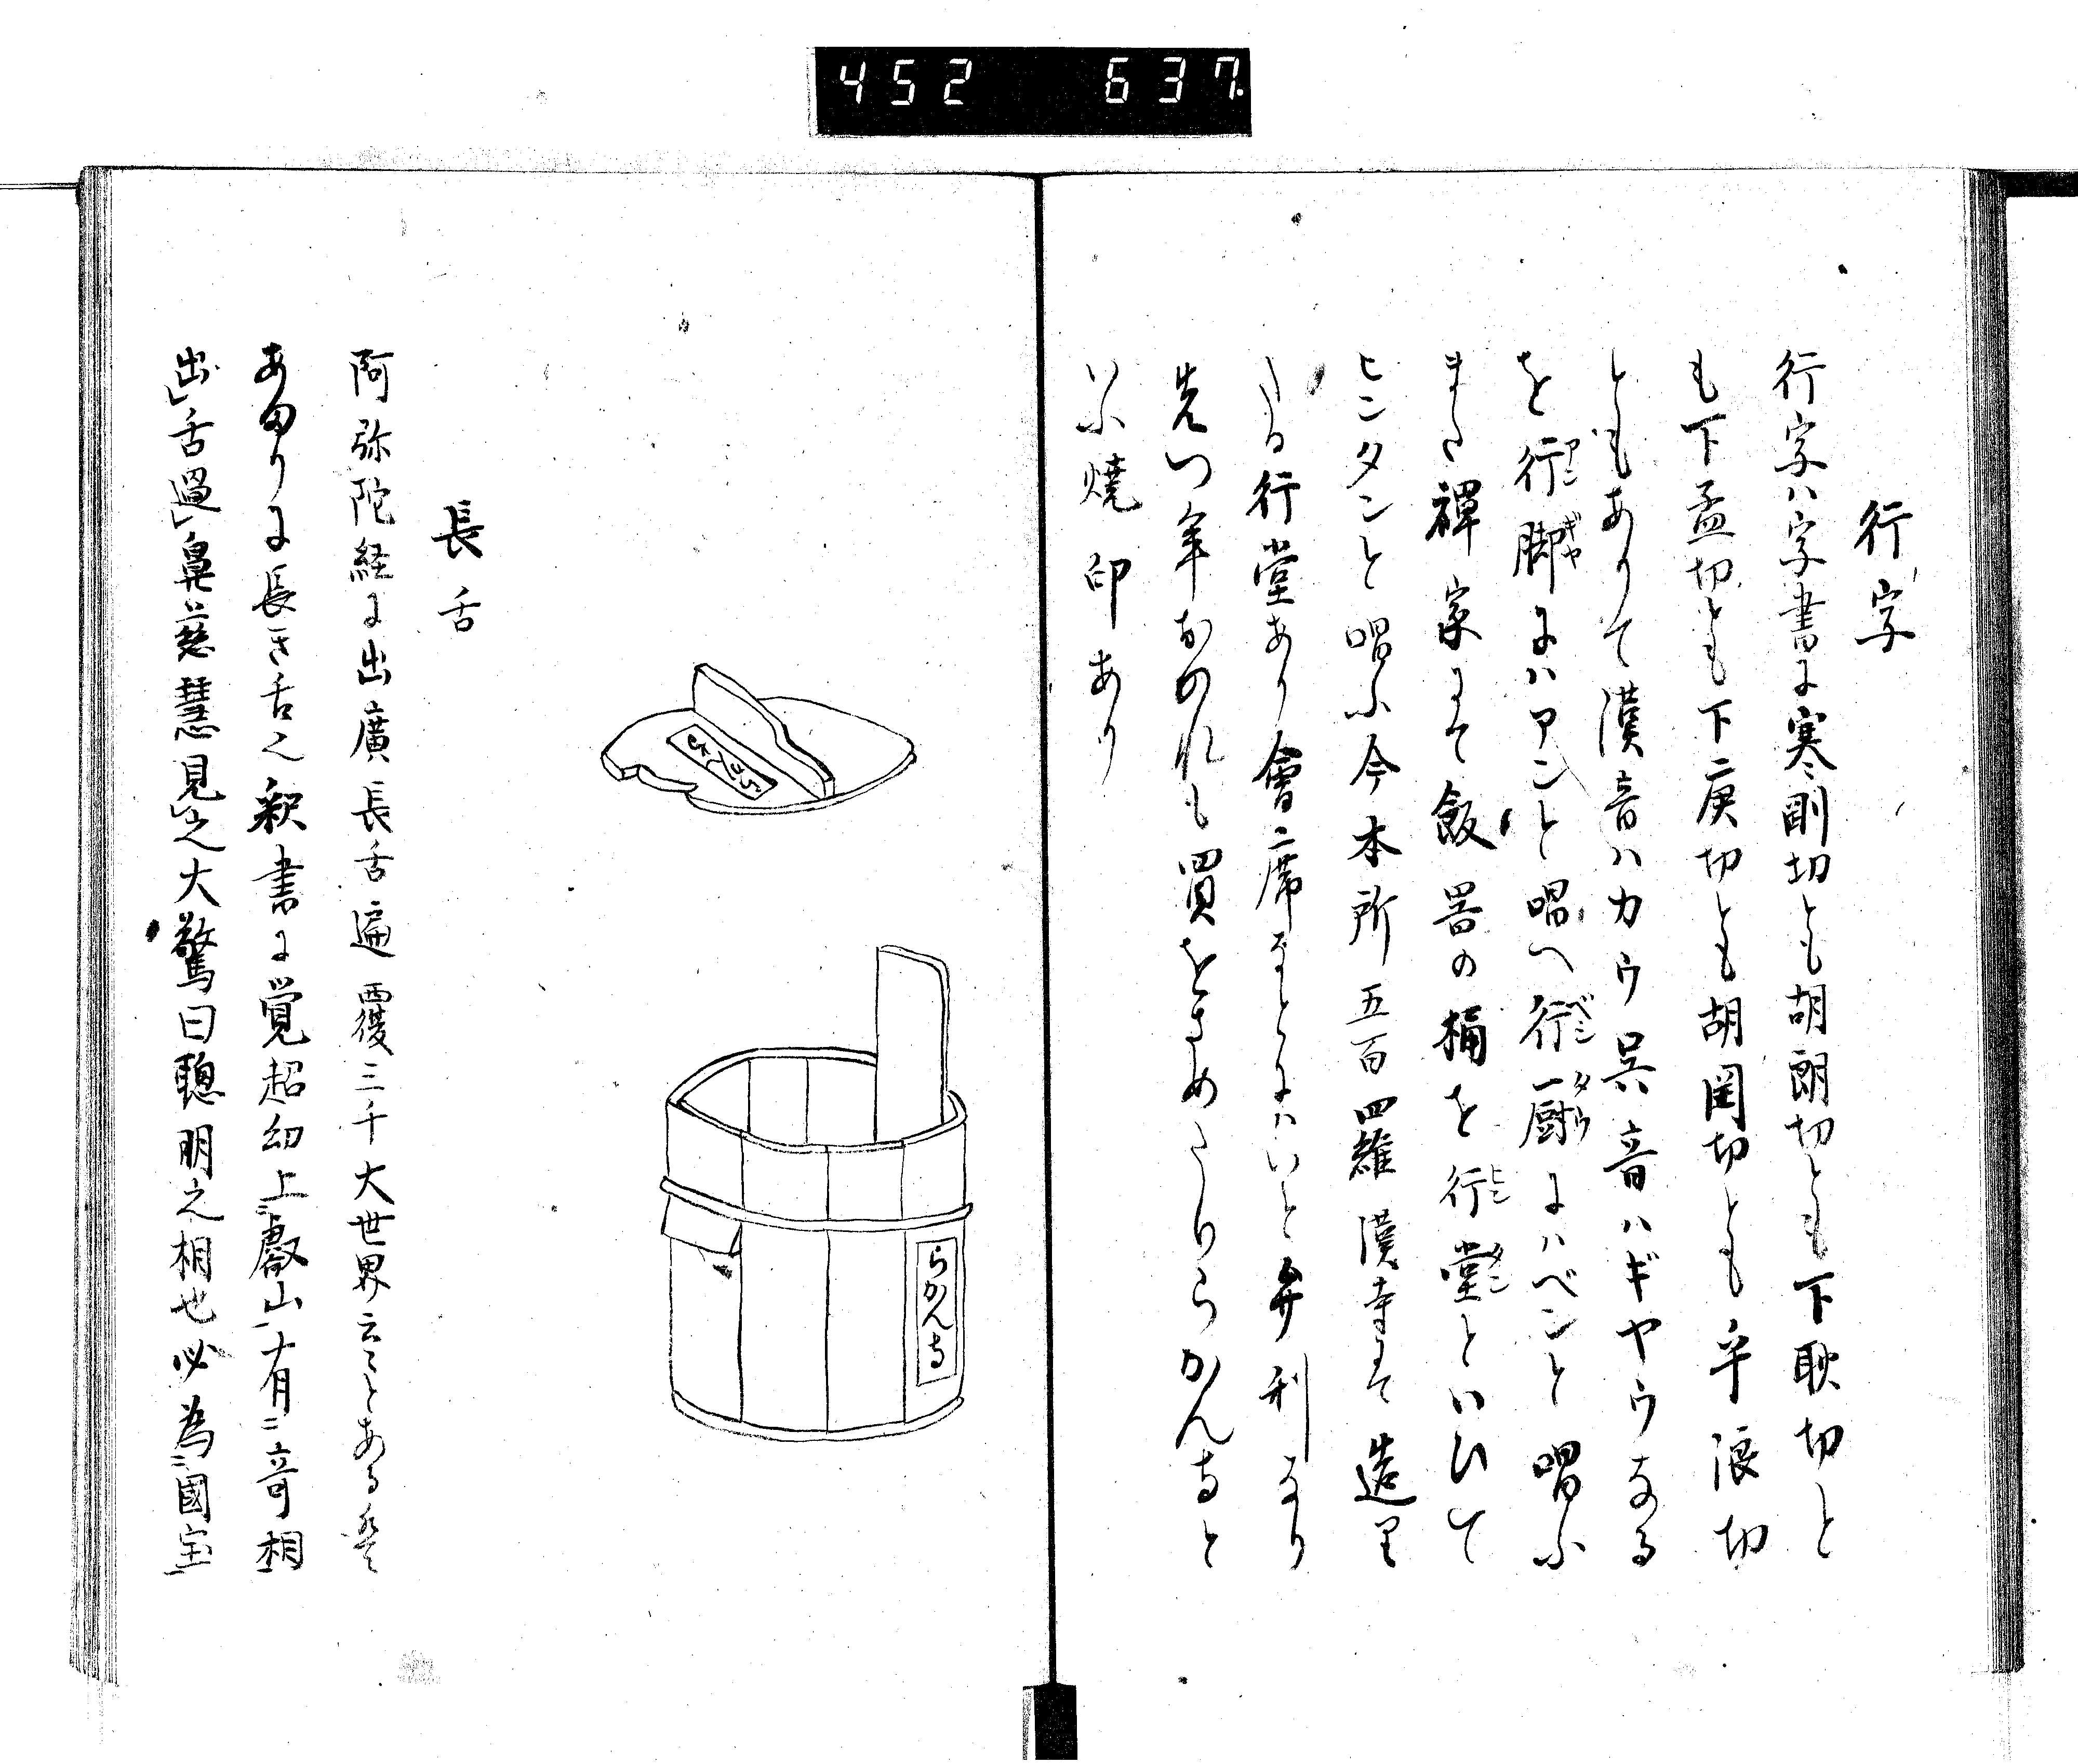 452 637
行字
行字ハ字書に寒剛切とも胡朗切とも下耿切と
も下孟切とも下庚切とも胡岡切とも乎浪切
ともありて漢音ハカウ呉音ハギヤウなる
を行脚にハアンと唱へ行厨にハベンと唱ふ
アン ギヤ ベン タウ
また禅家にて飯器の桶を行堂といひて
ヒン タン
ヒンタンと唱ふ今本所五百四羅漢寺にて造里
たる行堂あり會席なとにハいと弁利なり
先つ年おのれも買をさめたりらかん寺と
いふ焼印あり
らかん寺
らかん寺
長舌
阿弥陀経に出廣長舌遍覆三千大世界云々とある
あまりに長き舌也釈書に覚超幼上叡山有奇相
出舌過鼻慈慧見之大驚曰聰明之相也必為國宝